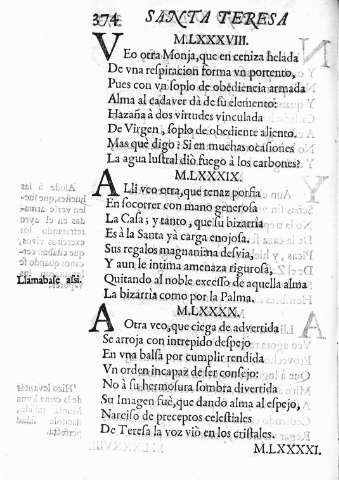 374 SANTA TERESA
M.LXXXVIII.
VEo otra Monja, que en ceniza helada
De vna respiracion forma vn portento,
Pues con vn soplo de obediencia armada
Alma al cadaver dà de su elemento:
Hazaña à dos virtudes vinculada
De Virgen, soplo de obediente aliento.
Mas què digo? Si en muchas ocasiones
La agua lustral diò fuego à los carbones?
M.LXXXIX.
ALli veo otra, que tenaz porfia
En socorrer con mano generosa
La Casa; y tanto, que su bizarria
Es à la Santa yà carga enojosa.
Sus regalos magnanima desvia,
Y aun le intima amenaza rigurosa;
Llamabase assi.
Quitando al noble excesso de aquella alma
La bizarria como por la Palma.
M.LXXXX.
A Otra veo, que ciega de advertida
Se arroja con intrepido despejo
En vna balsa por cumplir rendida
Vn orden incapaz de ser consejo:
No à su hermosura sombra divertida
Su Imagen fuè, que dando alma al espejo,
Narciso de preceptos celestiales
De Teresa la voz viò en los cristales.
M.LXXXXI.